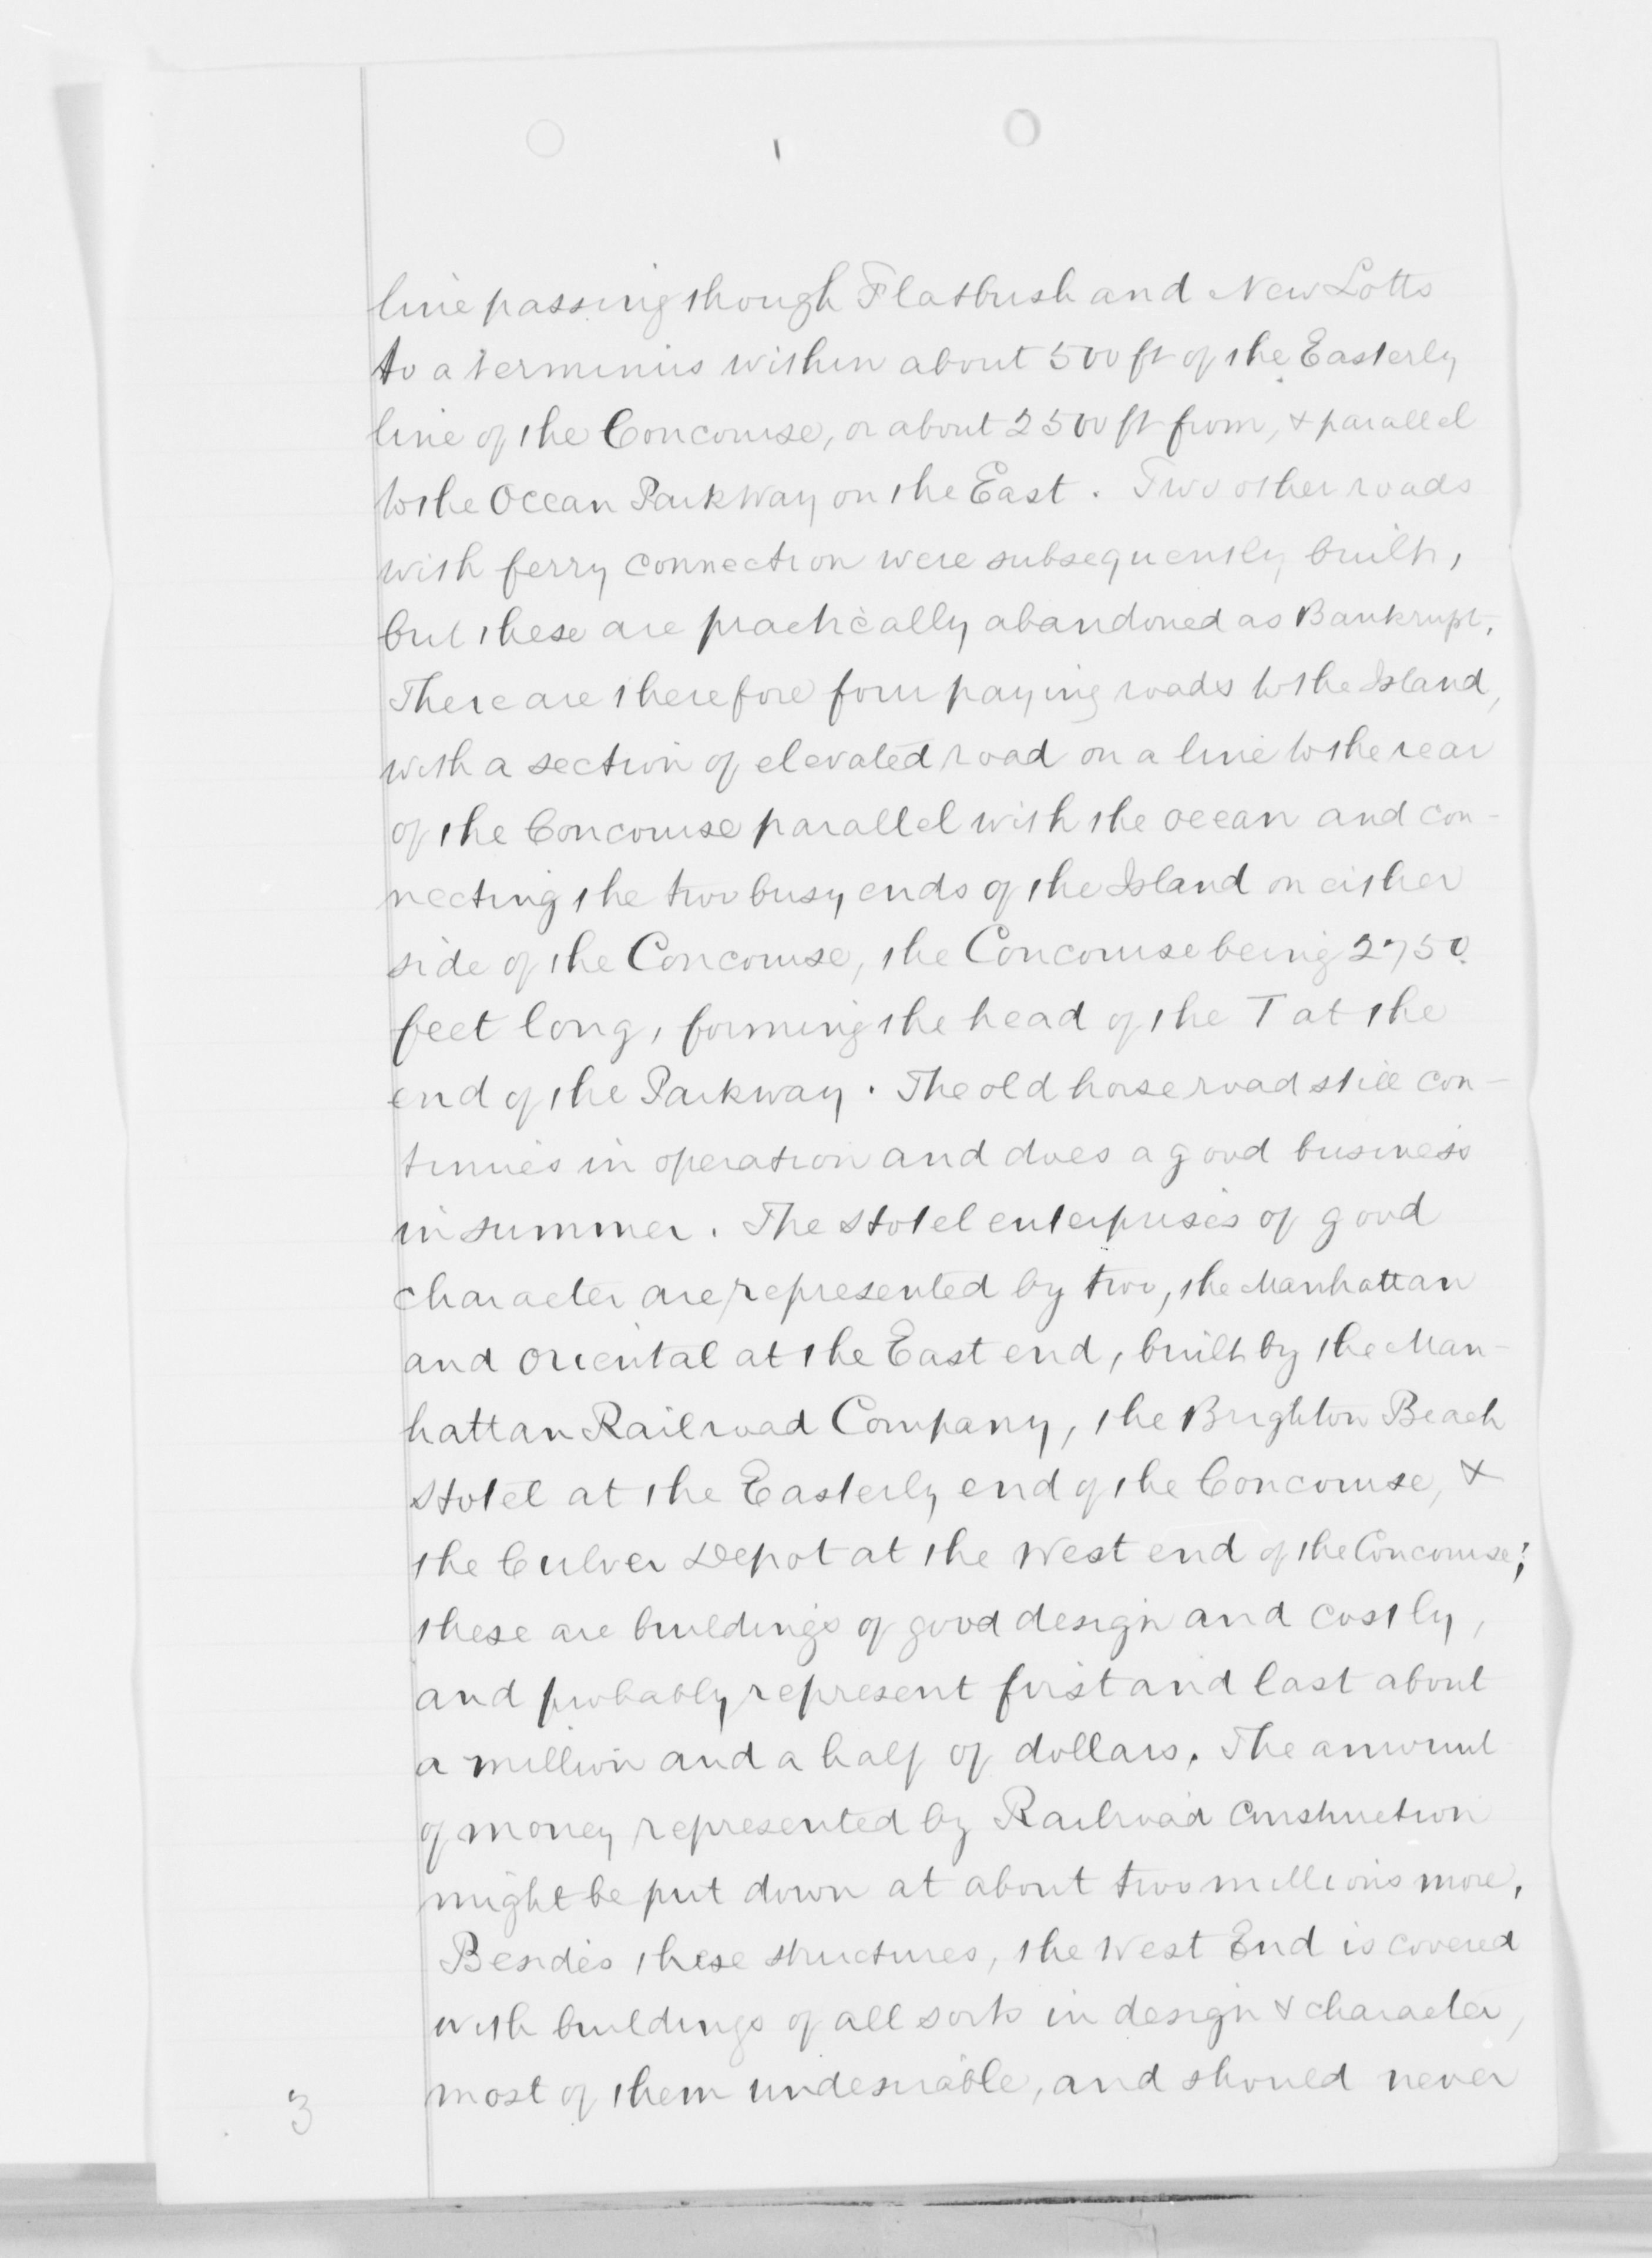 line passing though Flatbush and New Lotts
to a terminus within about 500 ft of the Easterly
line of the Concourse, or about 2500 ft from, & parallel
to the Ocean ParkWay on the East. Two other roads
with ferry connection were subsequently built,
but these are practically abandoned as Bankrupt.
There are therefore four paying roads to the Island,
with a section of elevated road on a line to the rear
of the Concourse parallel with the ocean and con-
necting the two busy ends of the Island on either
side of the Concourse, the Concourse being 2750
feet long, forming the head of the T at the
end of the Parkway. The old horse road still con-
tinues in operation and does a good business
in summer. The Hotel enterprises of good
character are represented by two, the Manhattan
and Oriental at the East end, built by the Man-
hattan Railroad Company, the Brighton Beach
Hotel at the Easterly end of the Concourse, &
the Culver Depot at the West end of the Concourse;
these are buildings of good design and costly,
and probably represent first and last about
a million and a half of dollars. The amount
of money represented by Railroad Construction
might be put down at about two millions more.
Besides these structures, the West End is covered
with buildings of all sorts in design & character,
most of them undesirable, and should never
3